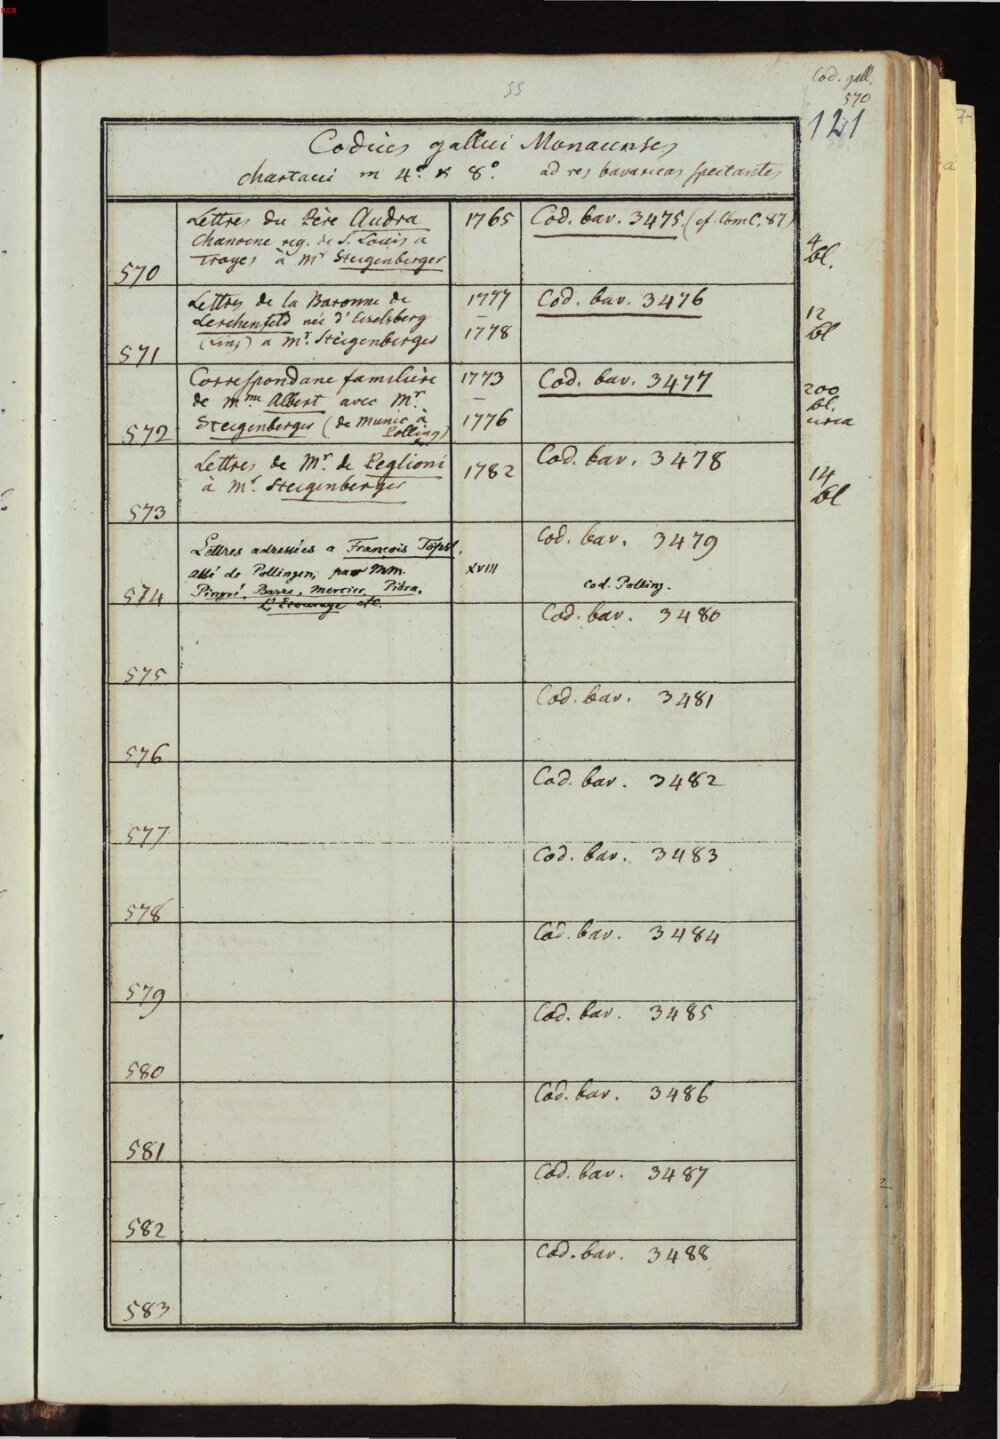 55
Cod. gall.
570
121
Codices gallici Monacenses
chartacei in 4° & 8°. ad res bavaricas spectantes
570
Lettres du Père Audra
chanoine reg. de S. Louis a
Troyes à Mr Steigenberger
1765
Cod. bav. 3475. (cf. Cbm C. 87)
4
bl.
571
Lettres de la Baronne de
Lerchenfeld née d'Eiselsberg
(Linz) a Mr. Steigenberger
1777
–
1778
Cod. bav. 3476
12
bl
572
Correspondance familière
de Mme Albert avec Mr.
Steigenberger (de Munic à
Polling)
1773
–
1776
Cod. bav. 3477
200
bl.
circa
573
Lettres de Mr. de Peglioni
à Mr. Steigenberger
1782
Cod. bav. 3478
14
bl
574
Lettres adressées a François Töpsl,
abbé de Pollingen, par MM.
Pingré, Barre, Mercier, Pibra,
L'Ecuy etc.
XVIII
Cod. bav. 3479
Cod. Polling.
575
Cod. bav. 3480
576
Cod. bav. 3481
577
Cod. bav. 3482
578
Cod. bav. 3483
579
Cod. bav. 3484
580
Cod. bav. 3485
581
Cod. bav. 3486
582
Cod. bav. 3487
583
Cod. bav. 3488